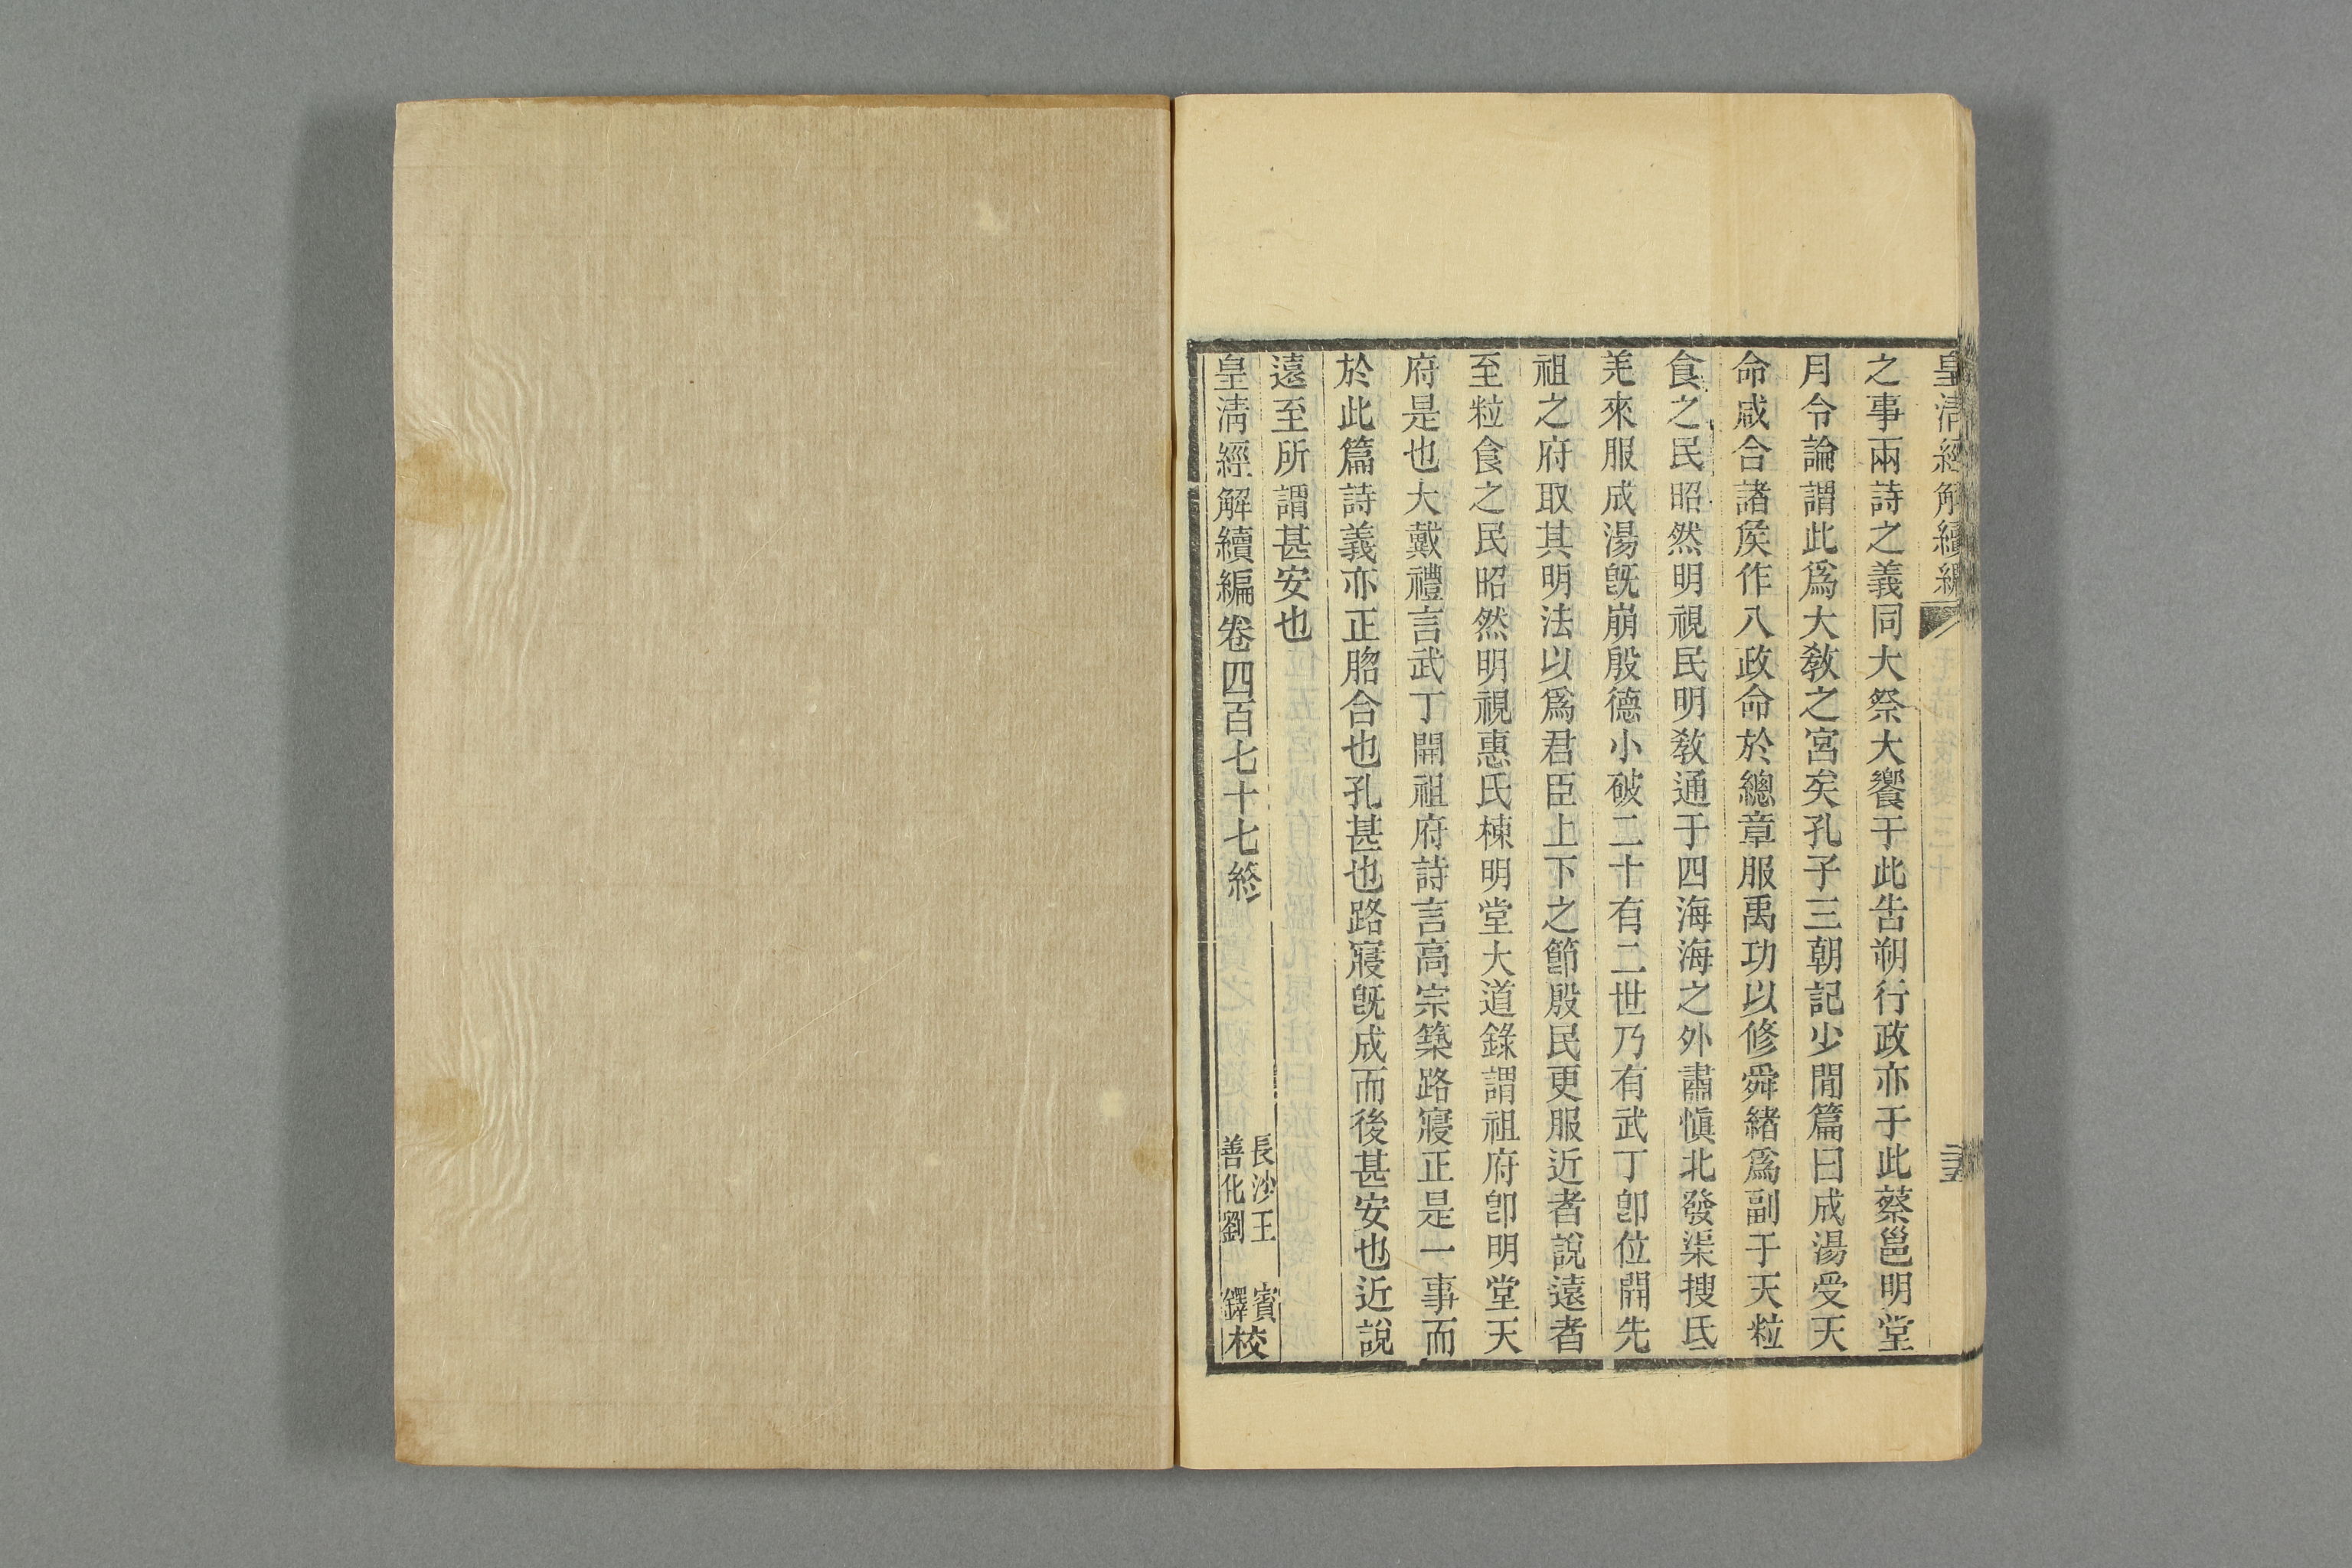 皇清經解續編
之事兩詩之義同大祭大饗于此告朔行政亦于此蔡邕明堂
月令論謂此爲大敎之宮矣孔子三朝記少閒篇曰成湯受天
命咸合諸矦作八政命於總章服禹功以修舜緒爲副于天粒
食之民昭然明視民明敎通于四海海之外肅愼北發渠搜氐
羌來服成湯旣崩殷德小破二十有二世乃有武丁卽位開先
祖之府取其明法以爲君臣上下之節殷民更服近者說遠者
至粒食之民昭然明視惠氏棟明堂大道錄謂祖府卽明堂天
府是也大戴禮言武丁開祖府詩言高宗築路寢正是一事而
於此篇詩義亦正脗合也孔甚也路寢旣成而後甚安也近說
遠至所謂甚安也
皇清經解續編卷四百七十七終
長沙王 賓
善化劉 鐸
校